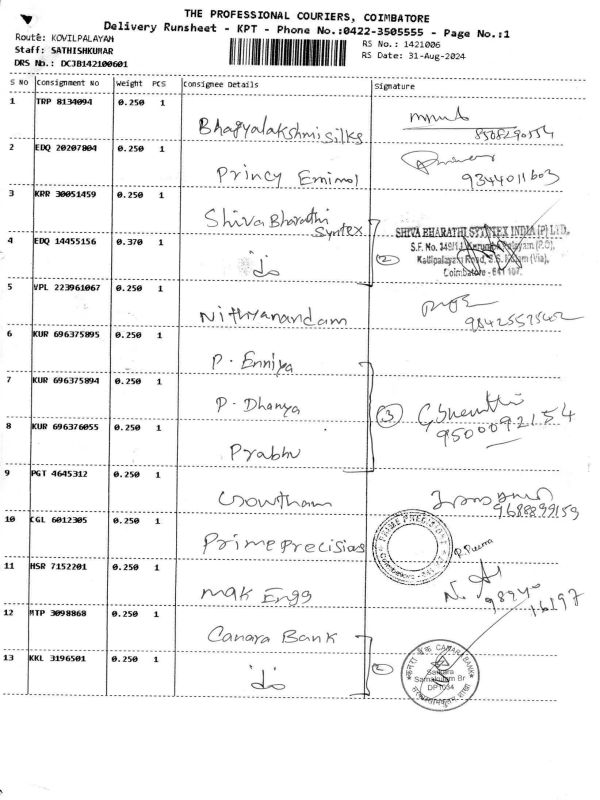 THE PROFESSIONAL COURIERS, COIMBATORE
Delivery Runsheet - KPT - Phone No.:0422-3505555 - Page No.:1
Route: KOVILPALAYAM
Staff: SATHISHKUMAR
DRS No.: DCJB142100601
RS No.: 1421006
RS Date: 31-Aug-2024
S NO Consignment No Weight PCS Consignee Details Signature
1 TRP 8134094 0.250 1 Bhagyalakshmi silks
8508290554
2 EDQ 20207804 0.250 1 Princy Emimol
9344011603
3 KRR 30051459 0.250 1 Shiva Bharathi Syntex
4 EDQ 14455156 0.370 1 do
2
SHIVA BHARATHI SYNTEX INDIA (P) LTD.
Coimbatore - 641 107.
5 VPL 223961067 0.250 1 Nithyanandam
6 KUR 696375895 0.250 1 P. Enniya
7 KUR 696375894 0.250 1 P. Dhanya
3
9500092154
8 KUR 696376055 0.250 1 Prabhu
9 PGT 4645312 0.250 1 Gowtham
9688899159
10 CGL 6012305 0.250 1 Prime precision
PRIME PRECISION
11 HSR 7152201 0.250 1 Mak Engg
12 MTP 3098868 0.250 1 Canara Bank
13 KKL 3196501 0.250 1 do
2
CANARA BANK
DP1034